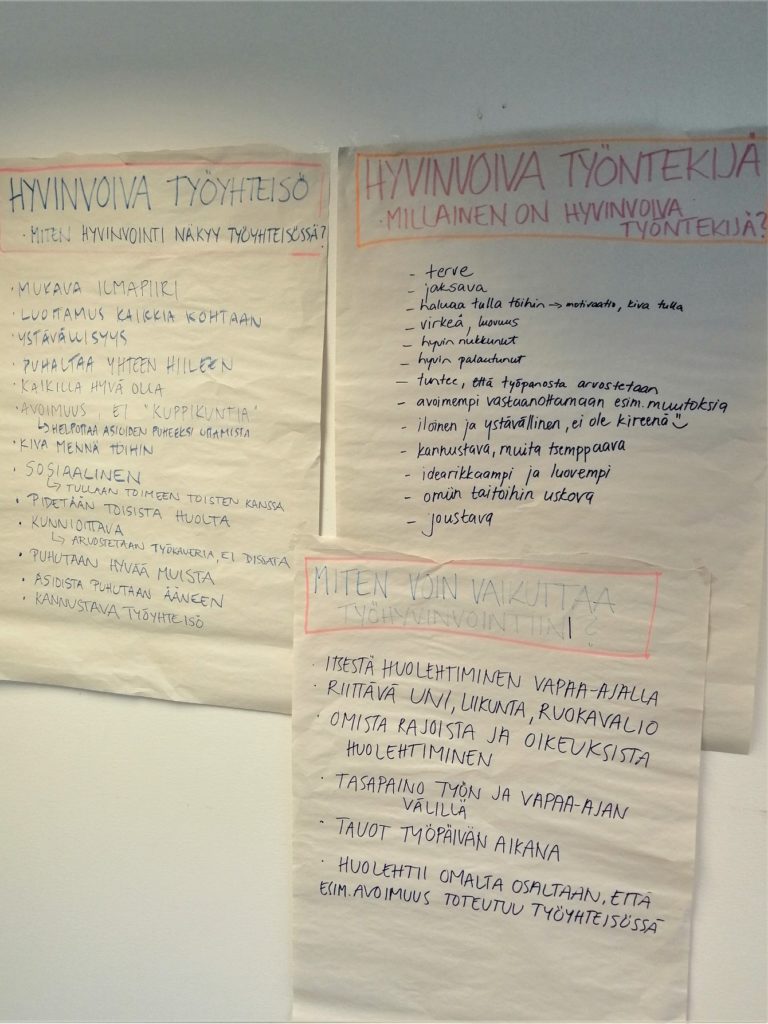 HYVINVOIVA TYÖYHTEISÖ
· MITEN HYVINVOINTI NÄKYY TYÖYHTEISÖSSÄ?
· MUKAVA ILMAPIIRI
· LUOTTAMUS KAIKKIA KOHTAAN
· YSTÄVÄLLISYYS
· PUHALTAA YHTEEN HIILEEN
· KAIKILLA HYVÄ OLLA
· AVOIMUUS, EI "KUPPIKUNTIA"
↳ HELPOTTAA ASIOIDEN PUHEEKSI OTTAMISTA
· KIVA MENNÄ TÖIHIN
· SOSIAALINEN
↳ TULLAAN TOIMEEN TOISTEN KANSSA
· PIDETÄÄN TOISISTA HUOLTA
· KUNNIOITTAVA
↳ ARVOSTETAAN TYÖKAVERIA, EI DISSATA
· PUHUTAAN HYVÄÄ MUISTA
· ASIOISTA PUHUTAAN ÄÄNEEN
· KANNUSTAVA TYÖYHTEISÖ
HYVINVOIVA TYÖNTEKIJÄ
· MILLAINEN ON HYVINVOIVA
TYÖNTEKIJÄ?
- terve
- jaksava
- haluaa tulla töihin → motivaatio, kiva tulla
- virkeä, luovuus
- hyvin nukkunut
- hyvin palautunut
- tuntee, että työpanosta arvostetaan
- avoimempi vastaanottamaan esim. muutoksia
- iloinen ja ystävällinen, ei ole kireenä
- kannustava, muita tsemppaava
- idearikkaampi ja luovempi
- omiin taitoihin uskova
- joustava
MITEN VOIN VAIKUTTAA
TYÖHYVINVOINTIINI?
· ITSESTÄ HUOLEHTIMINEN VAPAA-AJALLA
· RIITTÄVÄ UNI, LIIKUNTA, RUOKAVALIO
· OMISTA RAJOISTA JA OIKEUKSISTA
HUOLEHTIMINEN
· TASAPAINO TYÖN JA VAPAA-AJAN
VÄLILLÄ
· TAUOT TYÖPÄIVÄN AIKANA
· HUOLEHTII OMALTA OSALTAAN, ETTÄ
ESIM. AVOIMUUS TOTEUTUU TYÖYHTEISÖSSÄ